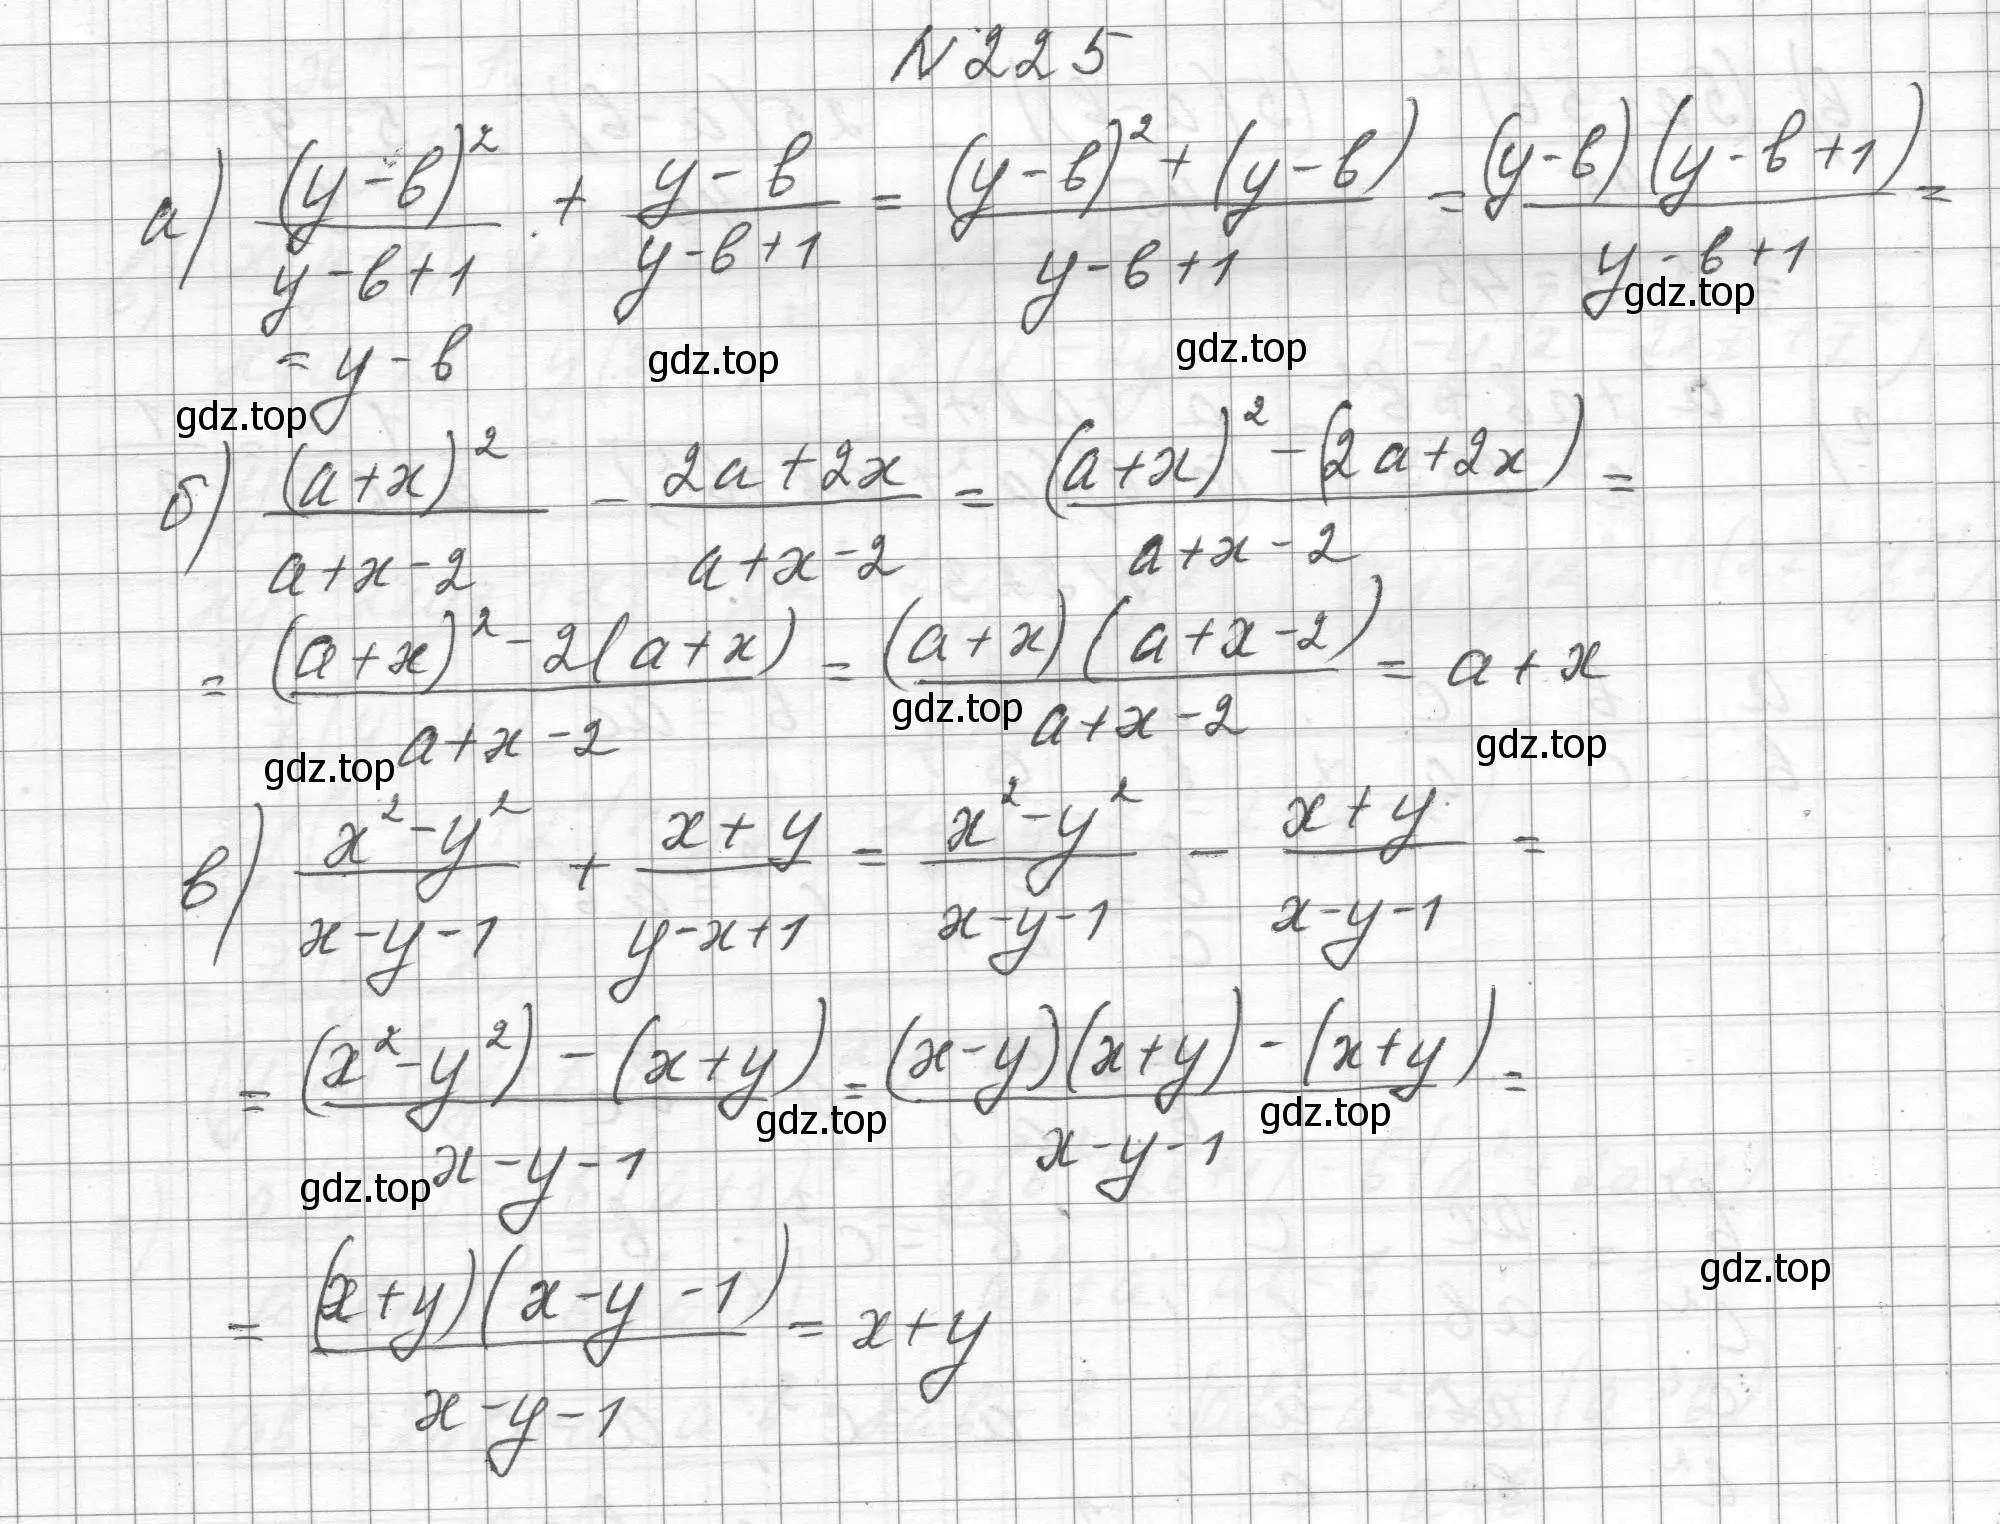 N 225
а) (y-b)²/(y-b+1) + (y-b)/(y-b+1) = ((y-b)²+(y-b))/(y-b+1) = (y-b)(y-b+1)/(y-b+1) =
gdz.top
= y-b
gdz.top
gdz.top
gdz.top
б) (a+x)²/(a+x-2) - (2a+2x)/(a+x-2) = ((a+x)²-(2a+2x))/(a+x-2) =
= ((a+x)²-2(a+x))/(a+x-2) = (a+x)(a+x-2)/(a+x-2) = a+x
gdz.top
gdz.top
gdz.top
в) (x²-y²)/(x-y-1) + (x+y)/(y-x+1) = (x²-y²)/(x-y-1) - (x+y)/(x-y-1) =
= ((x²-y²)-(x+y))/(x-y-1) = ((x-y)(x+y)-(x+y))/(x-y-1) =
gdz.top
gdz.top
gdz.top
gdz.top
= (x+y)(x-y-1)/(x-y-1) = x+y